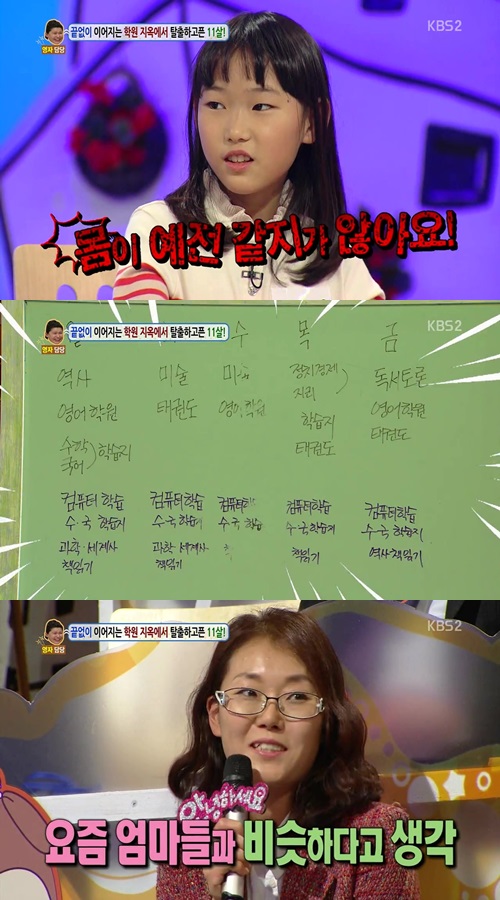 끝없이 이어지는 학원 지옥에서 탈출하고픈 11살!
영자 담당
KBS2
몸이 예전 같지가 않아요!
끝없이 이어지는 학원 지옥에서 탈출하고픈 11살!
영자 담당
KBS2
수 목 금
역사 미술 미술 정치경제 독서토론
지리
영어학원 태권도 영어학원 영어학원
학습지 태권도
수학 학습지 태권도
국어
컴퓨터학습 컴퓨터학습 컴퓨터학습 컴퓨터학습
수·국 학습지 수·국 학습 수·국 학습 수·국 학습지 수·국 학습지
과학·세계사 과학·세계사 책읽기 역사책읽기
책읽기 책읽기
끝없이 이어지는 학원 지옥에서 탈출하고픈 11살!
영자 담당
KBS2
안녕하세요
요즘 엄마들과 비슷하다고 생각